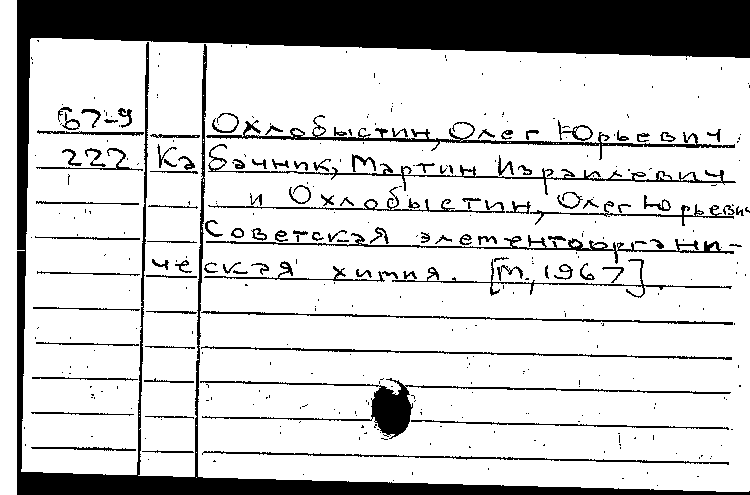 67-9 Охлобыстин, Олег Юрьевич
222 Кабачник, Мартин Израилевич
и Охлобыстин, Олег Юрьевич
Советская элементоорганическая
ческая химия. [М., 1967].